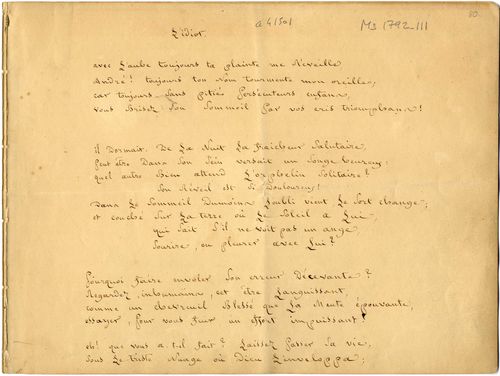 a 4150/
Ms 1792-III
80.
L'idiot.
avec L'aube toujours ta plainte me Réveille
André! toujours ton Nom tourmente mon oreille,
car toujours sans pitié Persécuteurs enfans,
vous Brisez Son Sommeil Par vos cris triomphans!
il Dormait. De La Nuit La Fraîcheur Salutaire,
Peut être Dans Son Sein versait un Songe heureux;
quel autre bien attend L'orphelin Solitaire?
Son Réveil est Si Douloureux!
Dans Le Sommeil Dumoins L'oubli vient Le Sort change;
et couché Sur La terre où Le Soleil a Lui,
qui sait S'il ne voit pas un ange
Sourire, ou pleurer avec Lui?
Pourquoi Faire envoler Son erreur Décevante?
Regardez, inhumains, cet être Languissant,
comme un chevreuil Blessé que La Meute épouvante,
essayer, Pour vous Fuir un effort impuissant!
eh! que vous a-t-il Fait? Laissez Passer Sa vie,
Sous Le triste Nuage où Dieu L'enveloppa;